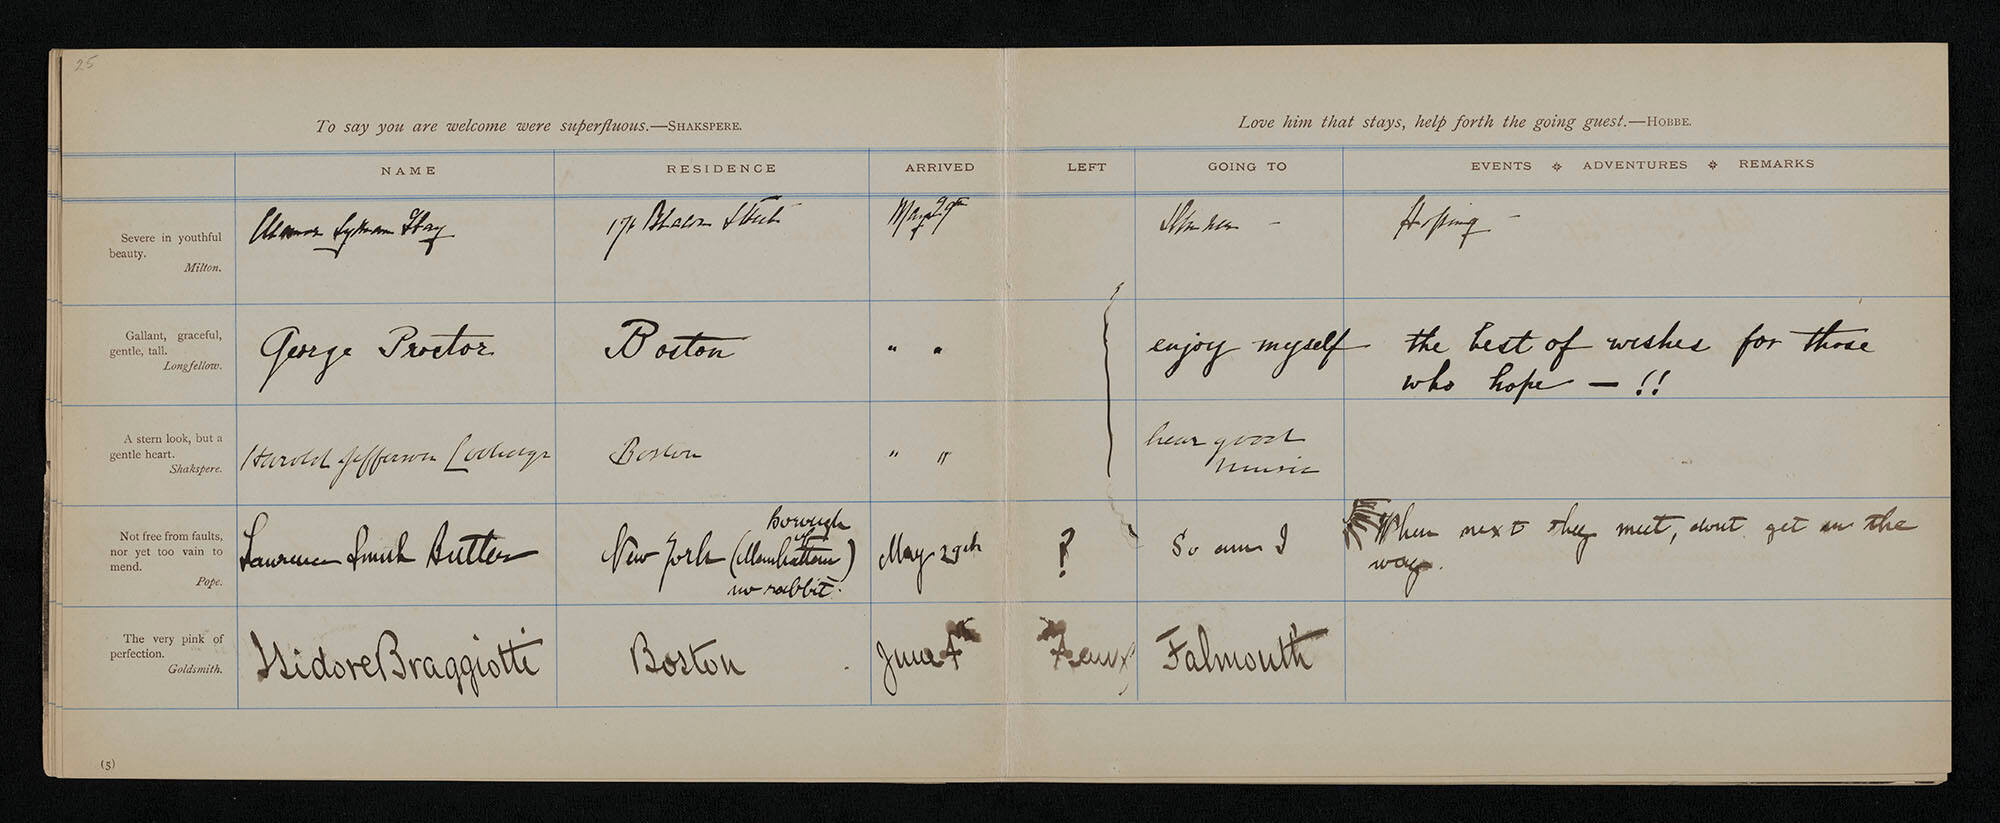 25
To say you are welcome were superfluous.—SHAKSPERE.
Love him that stays, help forth the going guest.—HOBBE.
NAME
RESIDENCE
ARRIVED
LEFT
GOING TO
EVENTS ❖ ADVENTURES ❖ REMARKS
Severe in youthful
beauty.
Milton.
Lyman
Street
May 29th
Hoping —
Gallant, graceful,
gentle, tall.
Longfellow.
George Proctor
Boston
" "
enjoy myself
the best of wishes for those
who hope — !!
A stern look, but a
gentle heart.
Shakspere.
Harold Jefferson Coolidge
Boston
" "
hear good
music
Not free from faults,
nor yet too vain to
mend.
Pope.
Laurence Smith Butler
New York (Manhattan)
borough
of
no rabbit.
May 29th
?
So am I
When next they meet, dont get in the
way.
The very pink of
perfection.
Goldsmith.
Isidore Braggiotti
Boston
June 4th
Falmouth
(5)